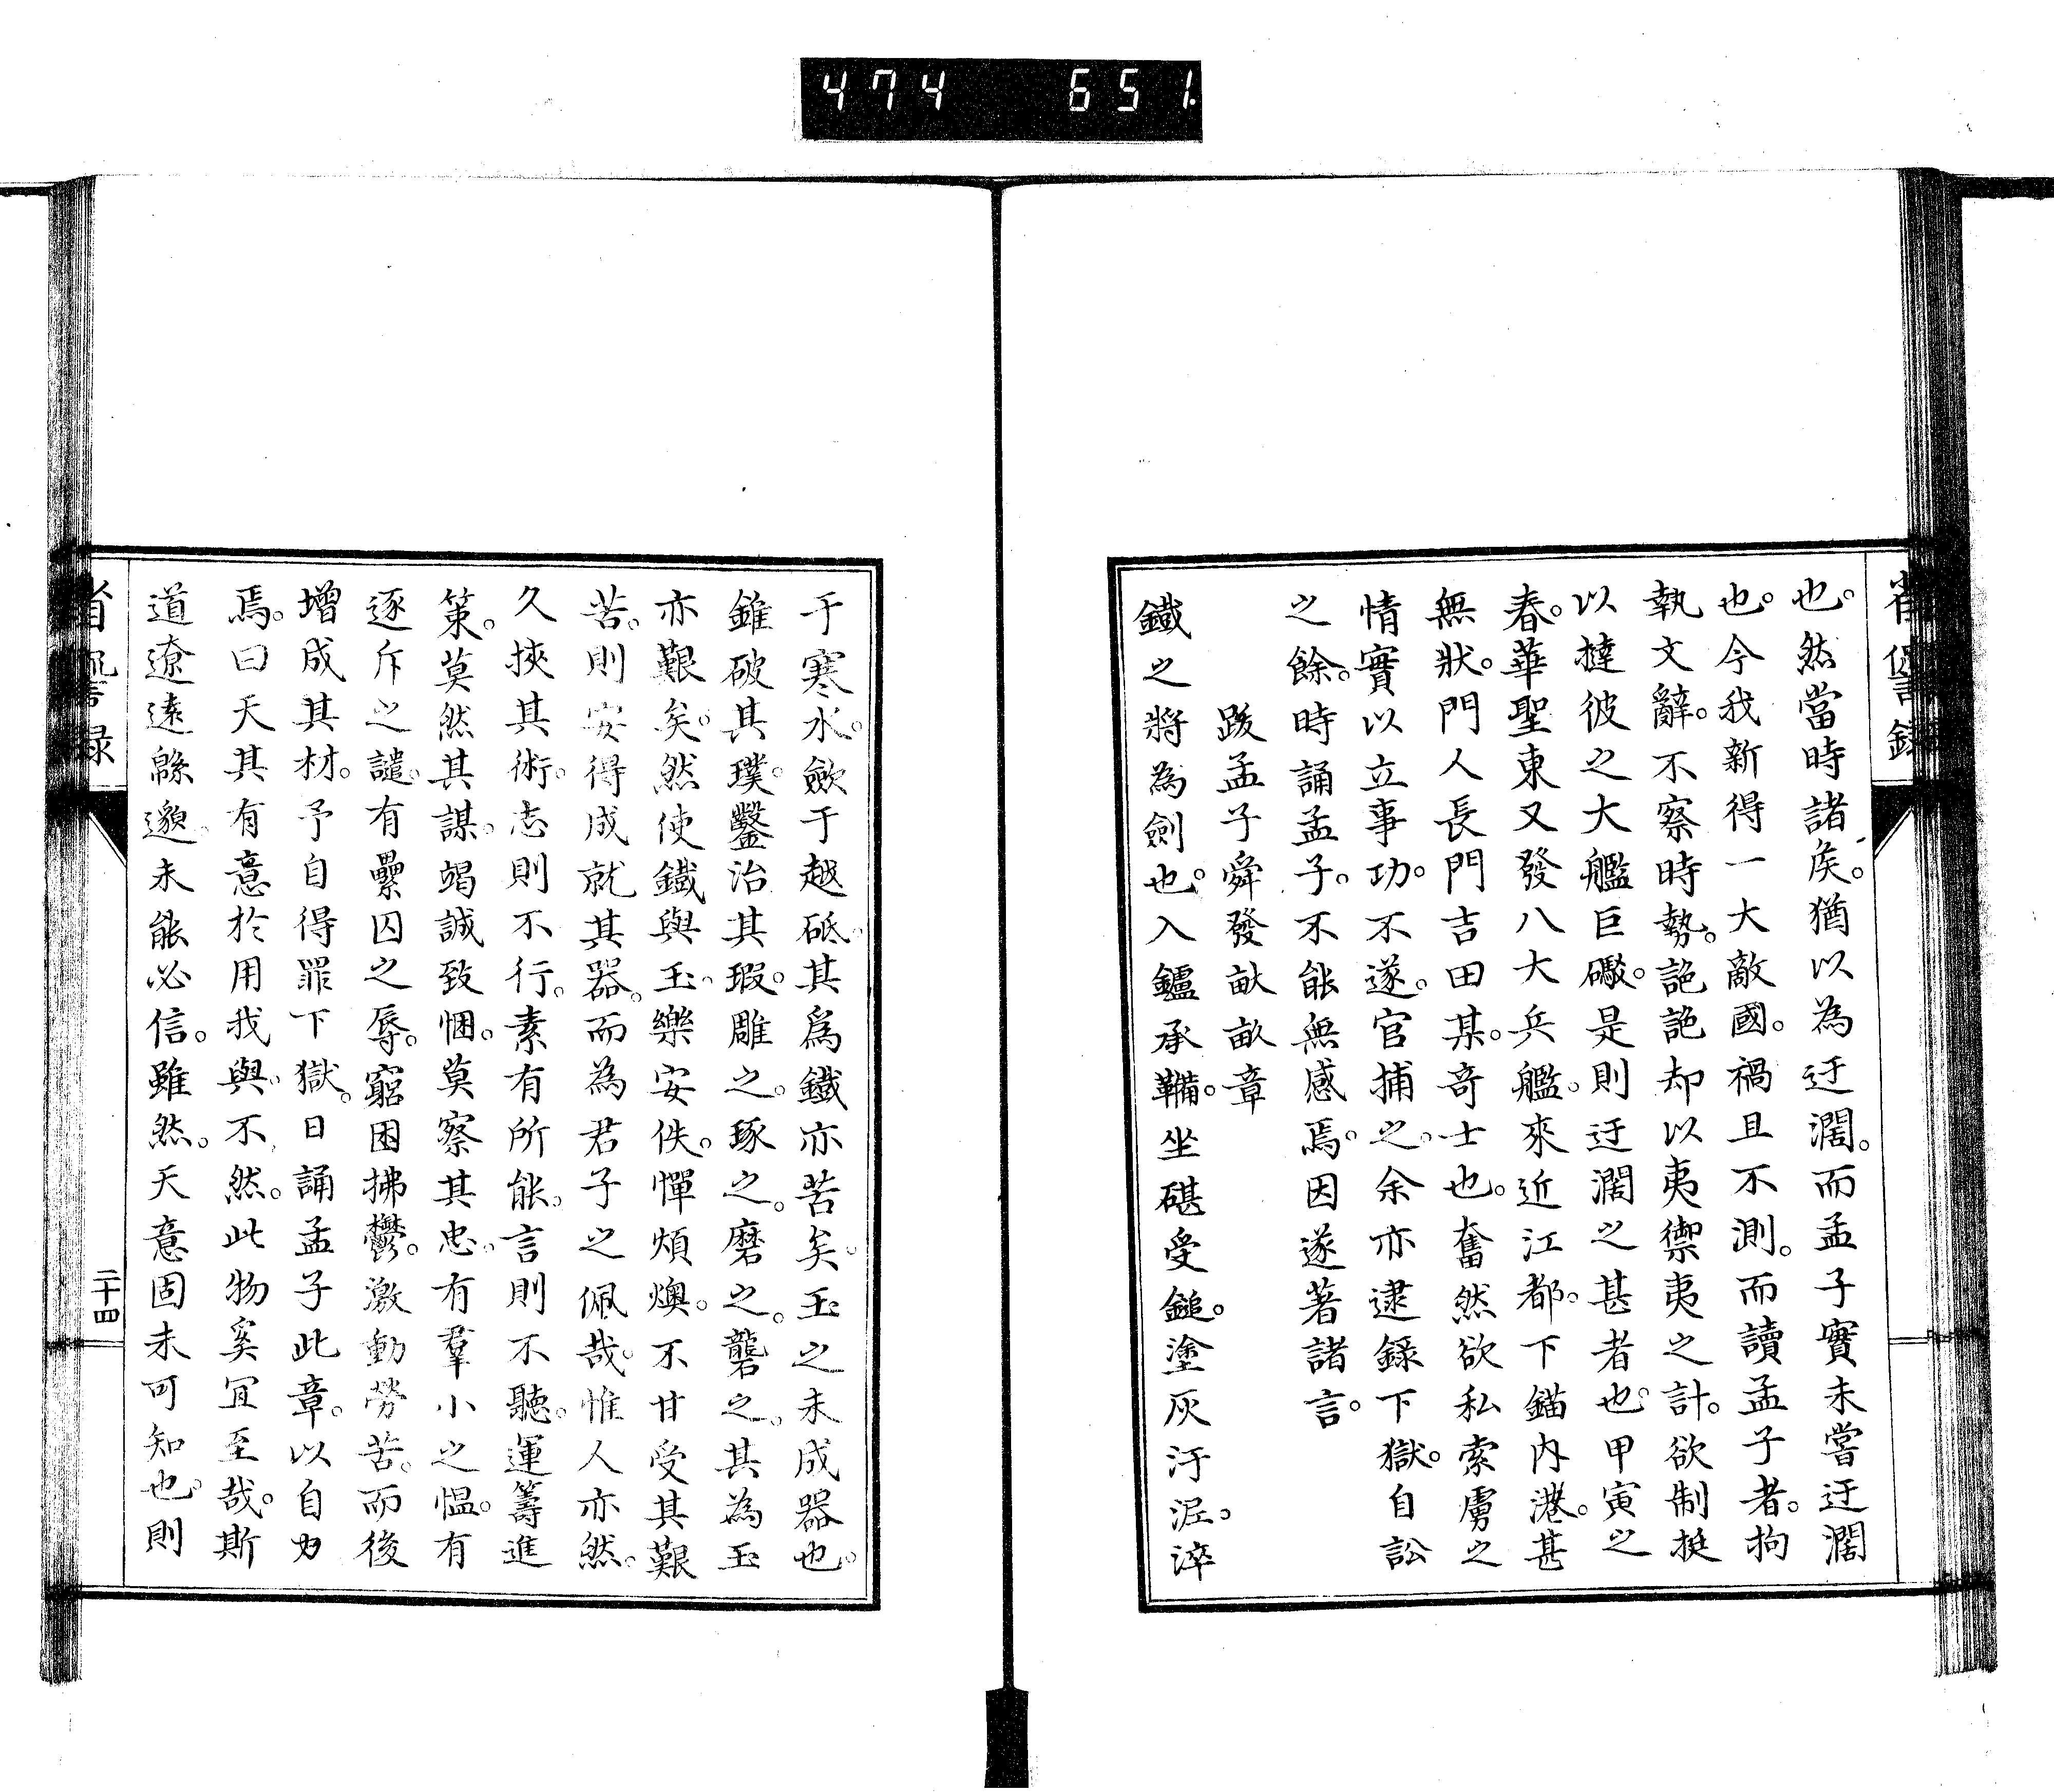 474 651.
省諐録
也。然當時諸矦。猶以為迂濶。而孟子實未嘗迂濶
也。今我新得一大敵國。禍且不測。而讀孟子者。拘
執文辭。不察時勢。訑訑却以夷禦夷之計。欲制挺
以撻彼之大艦巨礮。是則迂濶之甚者也。甲寅之
春。華聖東又發八大兵艦。來近江都。下錨内港。甚
無狀。門人長門吉田某。奇士也。奮然欲私索虜之
情實以立事功。不遂。官捕之。余亦逮錄下獄。自訟
之餘。時誦孟子。不能無感焉。因遂著諸言。
跋孟子舜發畎畝章
鐵之將為劍也。入鑪承鞴。坐碪受鎚。塗灰汙泥。淬
于寒水。歛于越砥。其爲鐵亦苦矣。玉之未成器也。
錐破其璞。鑿治其瑕。雕之。琢之。磨之。礱之。其為玉
亦艱矣。然使鐵與玉。樂安佚。憚煩燠。不甘受其艱
苦。則安得成就其器。而為君子之佩哉。惟人亦然。
久挾其術。志則不行。素有所能。言則不聽。運籌進
策。莫然其謀。竭誠致悃。莫察其忠。有羣小之愠。有
逐斥之譴。有纍囚之辱。窮困拂鬱。激動勞苦。而後
增成其材。予自得罪下獄。日誦孟子此章。以自力
焉。曰天其有意於用我與。不然。此物奚宜至哉。斯
道遼遠緜邈。未能必信。雖然。天意固未可知也。則
省諐録
二十四